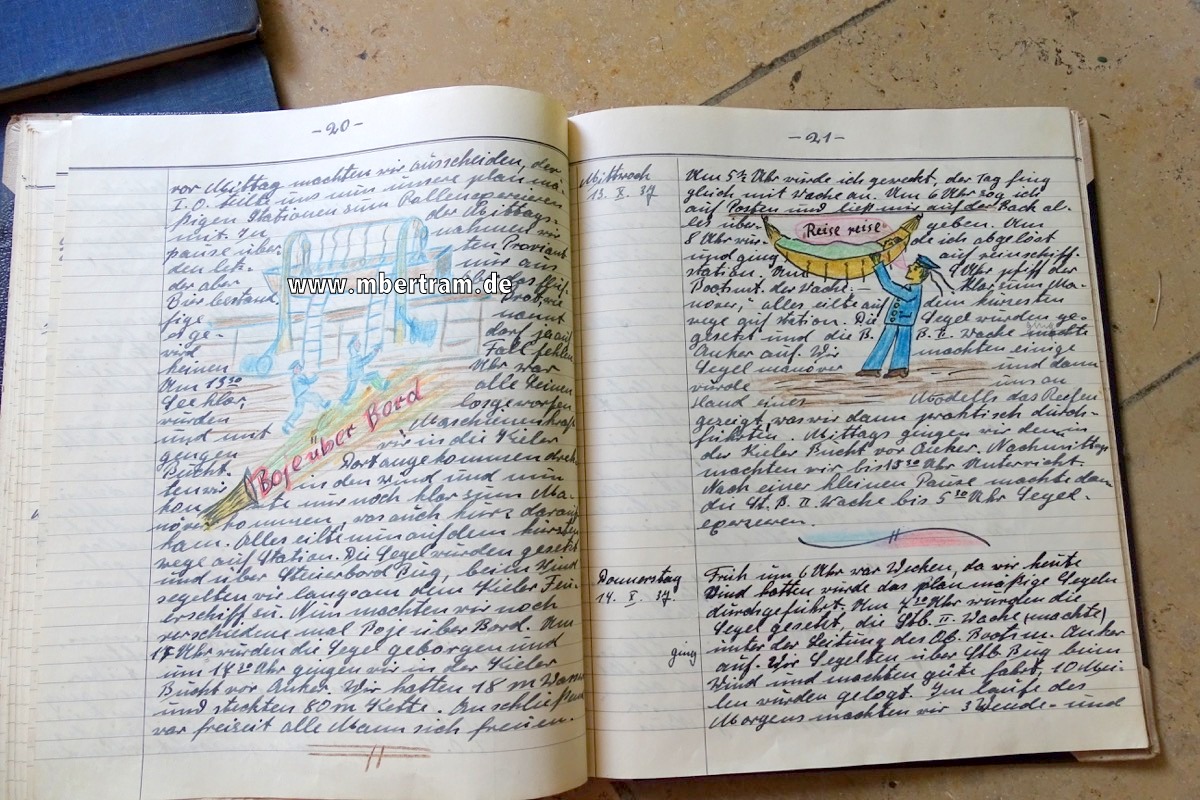 -20-
vor Mittag machten wir ausscheiden, der
I. O. teilte uns nun unsere plan mä-
ßigen Stationen zum
mit. In der Mittags-
pause über nahmen wir
den letz- ten Proviant
der aber nur aus
Bier bestand
fige nannt
darf ja auf
keinen Fall fehlen
Um 13 30 Uhr war
See klar, alle Leinen
wurden losgeworfen
und mit Maschinenkraft
gingen wir in die Kieler
Bucht. Dort angekommen dreh-
ten wir in den Wind und nun
nur noch klar zum Ma-
növer kommen, was auch kurz darauf
kam. Alles eilte nun auf dem kürzesten
wege auf Station. Die Segel wurden gesetzt
und über Steuerbord Bug, beim Wind
segelten wir langsam dem Kieler Feu-
erschiff zu. Nun machten wir noch
verschiedene mal Boje über Bord. Um
17 Uhr wurden die Segel geborgen und
um 17 30 Uhr gingen wir in der Kieler
Bucht vor Anker. Wir hatten 18 m Wasser
und steckten 80 m Kette. Anschließend
war freizeit alle Mann sich freuen.
Boje über Bord
www.mbertram.de
-21-
Mittwoch
13. X. 37
Um 5 30 Uhr wurde ich geweckt, der Tag fing
gleich mit Wache an. Um 6 Uhr zog ich
auf Posten und ließ mir auf der Back al-
les über- geben. Um
8 Uhr wur- de ich abgelöst
und ging auf reinschiff-
station. Um 9 Uhr pfiff der
Bootsmt. der Wache. Klar zum Ma-
növer," alles eilte auf dem kürzesten
wege auf Station. Die Segel wurden ge-
setzt und die B. B. II. Wache machte
Anker auf. Wir machten einige
Segel manöver und dann
wurde uns an
Hand eines Modells das Reefen
gezeigt, was wir dann praktisch durch-
führten. Mittags gingen wir dann in
der Kieler Bucht vor Anker. Nachmittags
machten wir bis 15 30 Uhr Unterricht.
Nach einer kleinen Pause machte dann
die St. B. II. Wache bis 5 30 Uhr Segel-
exerzieren.
Reise reise
Donnerstag
14. X. 37.
Früh um 6 Uhr war Wecken, da wir heute
Wind hatten wurde das plan mäßige Segeln
durchgeführt. Um 7 30 Uhr wurden die
Segel gesetzt die Stb. II. Wache (machte)
ging unter der Leitung des Ob. Bootsm. Anker
auf. Wir Segelten über Stb Bug beim
Wind und machten gute fahrt, 10 Mei-
len wurden gelogt. Im laufe des
Morgens machten wir 3 Wende- und